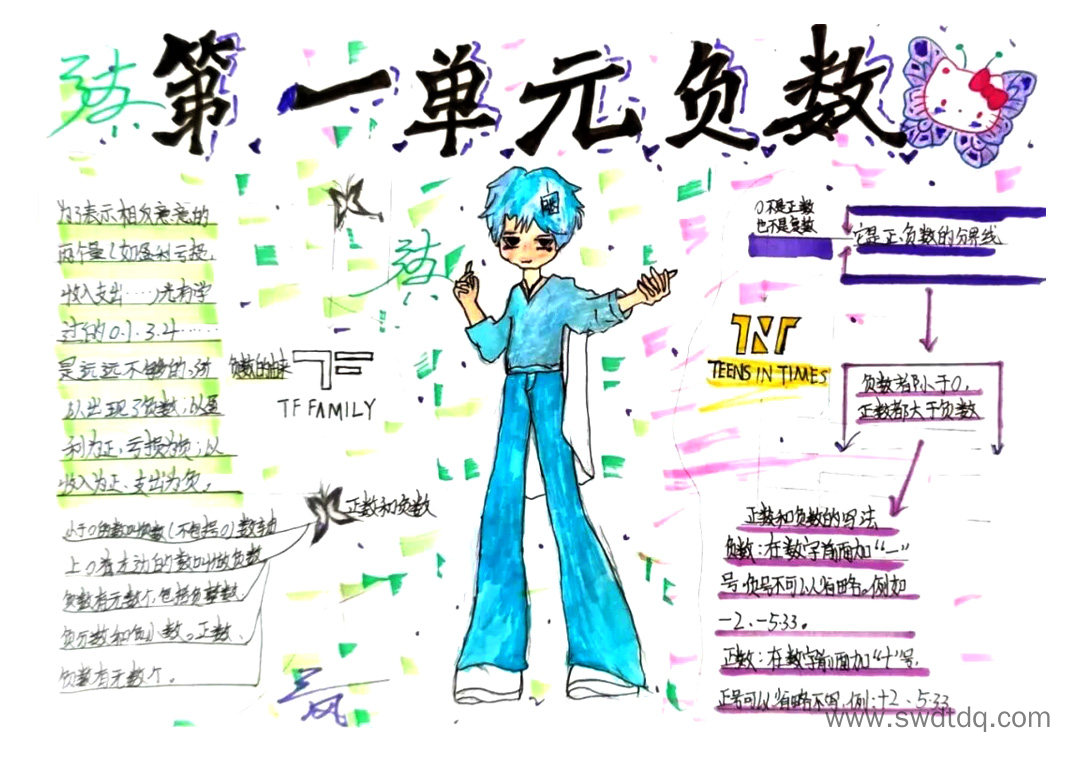 第一单元负数
为了表示相反意义的
两个量(如盈利亏损,
收入支出……)光有学
过的0.1.3.4……
是远远不够的。所
以出现了负数;以盈
利为正、亏损为负;以
收入为正、支出为负。
负数的由来
TF FAMILY
正数和负数
小于0的数叫负数(不包括0)数轴
上0着左边的数叫做负数
负数有无数个,包括负整数,
负分数和负小数。正数、
负数有无数个。
0不是正数
也不是负数
它是正负数的分界线
TNT
TEENS IN TIMES
负数都小于0,
正数都大于负数
正数和负数的写法
负数:在数字前面加“一”
号,负号不可以省略。例如
-2、-5.33。
正数:在数字前面加“+”号,
正号可以省略不写,例:+2、5.33
www.swdtdq.com